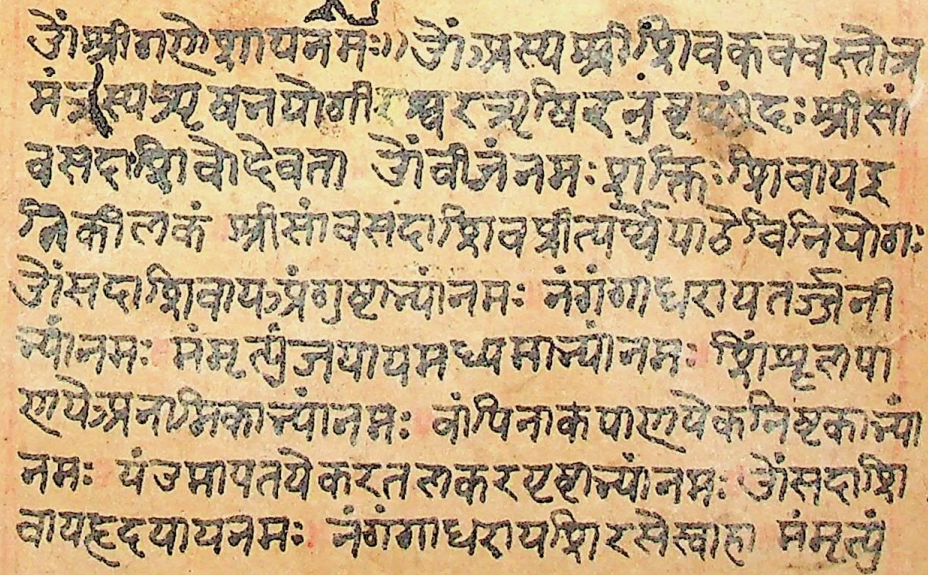 ॐश्रीगणेशायनमः॥ ॐअस्यश्रीशिवकवचस्तोत्र
मंत्रस्यऋषभयोगीश्वरऋषिरनुष्टुप्छंदः श्रीसां
वसदाशिवोदेवता ॐवीजंनमः शक्तिः शिवायइ
तिकीलकं श्रीसांवसदाशिवप्रीत्यर्थेपाठेविनियोगः
ॐसदाशिवायअंगुष्टाभ्यांनमः नंगंगाधरायतर्ज्जनी
भ्यांनमः मंमृत्युंजयायमध्यमाभ्यांनमः शिंशूलपा
णयेअनामिकाभ्यांनमः वांपिनाकपाणयेकनिष्टकाभ्यां
नमः यंउमापतयेकरतलकरपृष्टाभ्यांनमः ॐसदाशि
वायहृदयायनमः नंगंगाधरायशिरसेस्वाहा मंमृत्युं